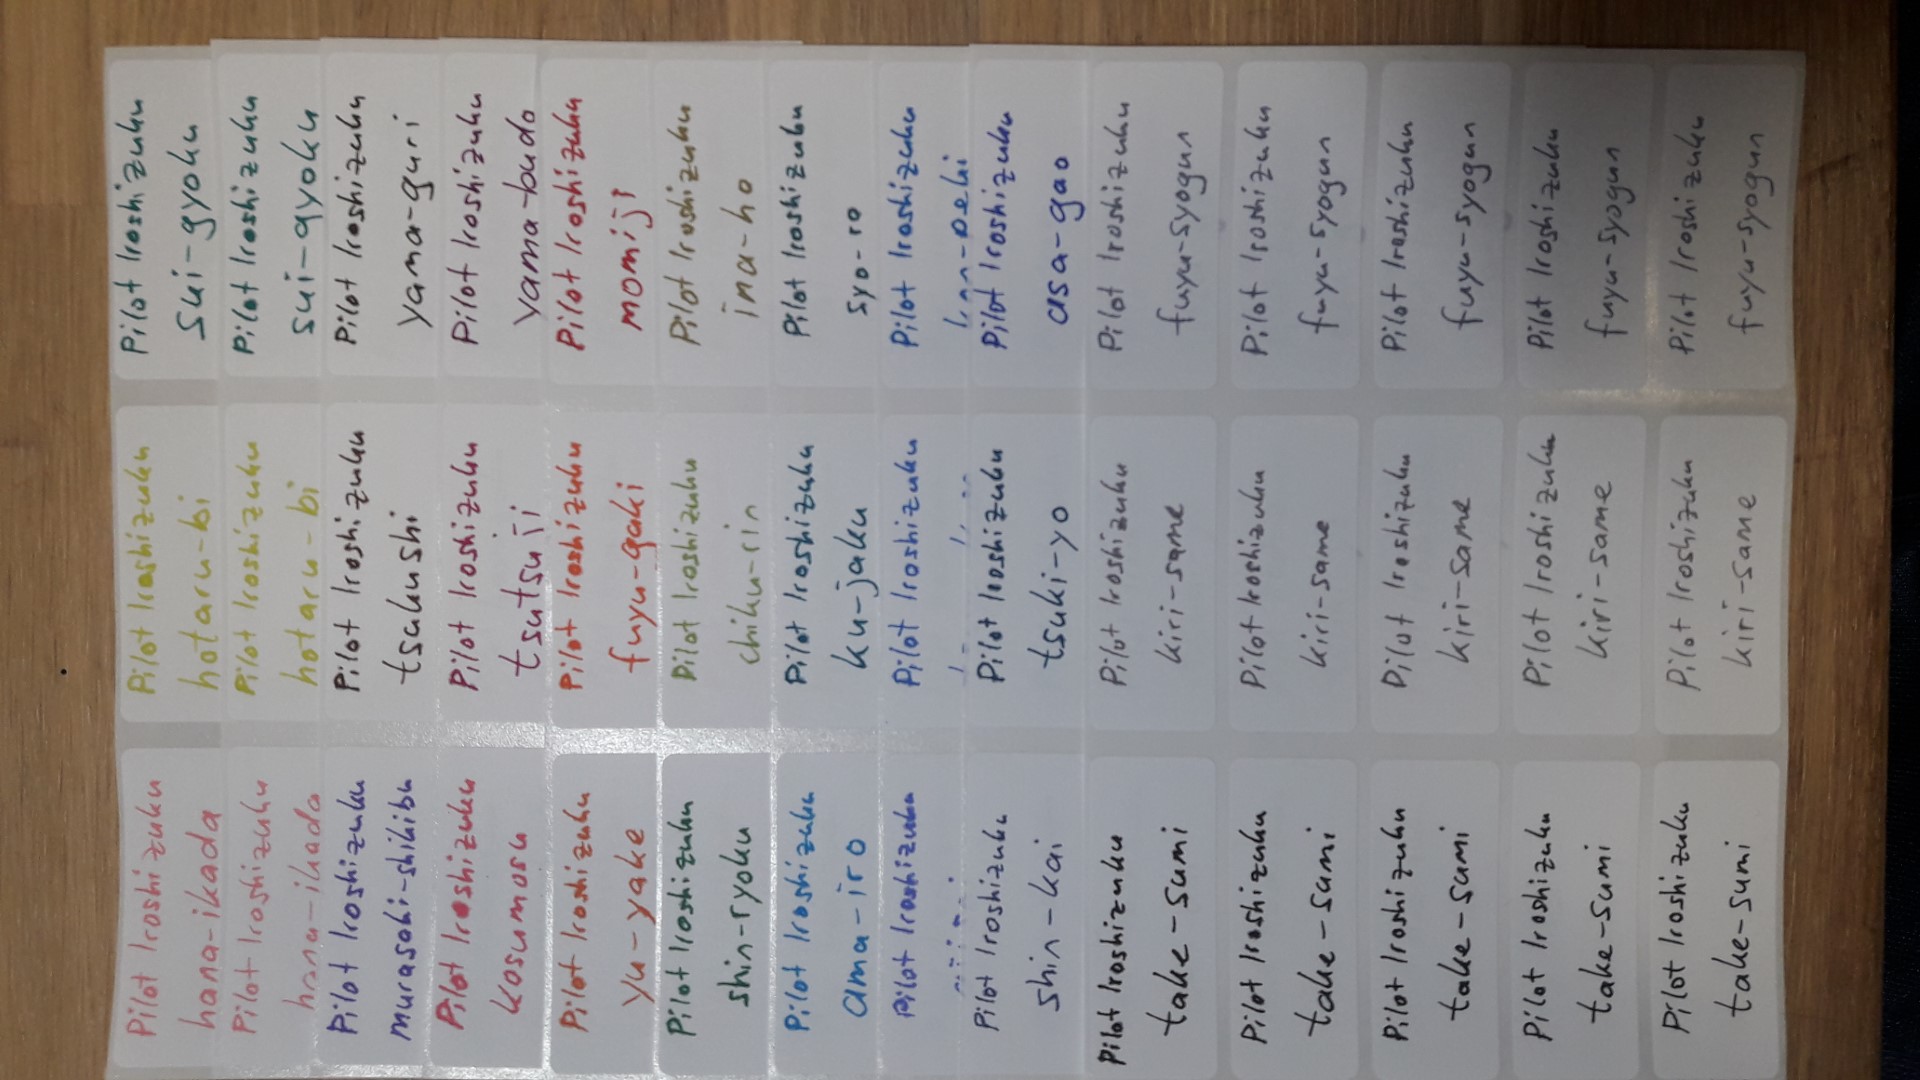 Pilot Iroshizuku Pilot Iroshizuku Pilot Iroshizuku
hana-ikada hotaru-bi sui-gyoku
Pilot Iroshizuku Pilot Iroshizuku Pilot Iroshizuku
hana-ikada hotaru-bi sui-gyoku
Pilot Iroshizuku Pilot Iroshizuku Pilot Iroshizuku
murasaki-shikibu tsukushi yama-guri
Pilot Iroshizuku Pilot Iroshizuku Pilot Iroshizuku
kosumosu tsutsuji yama-budo
Pilot Iroshizuku Pilot Iroshizuku Pilot Iroshizuku
yu-yake fuyu-gaki momiji
Pilot Iroshizuku Pilot Iroshizuku Pilot Iroshizuku
shin-ryoku chiku-rin ina-ho
Pilot Iroshizuku Pilot Iroshizuku Pilot Iroshizuku
ama-iro ku-jaku syo-ro
Pilot Iroshizuku Pilot Iroshizuku Pilot Iroshizuku
Pilot Iroshizuku Pilot Iroshizuku Pilot Iroshizuku
shin-kai tsuki-yo asa-gao
Pilot Iroshizuku Pilot Iroshizuku Pilot Iroshizuku
take-sumi kiri-same fuyu-syogun
Pilot Iroshizuku Pilot Iroshizuku Pilot Iroshizuku
take-sumi kiri-same fuyu-syogun
Pilot Iroshizuku Pilot Iroshizuku Pilot Iroshizuku
take-sumi kiri-same fuyu-syogun
Pilot Iroshizuku Pilot Iroshizuku Pilot Iroshizuku
take-sumi kiri-same fuyu-syogun
Pilot Iroshizuku Pilot Iroshizuku Pilot Iroshizuku
take-sumi kiri-same fuyu-syogun